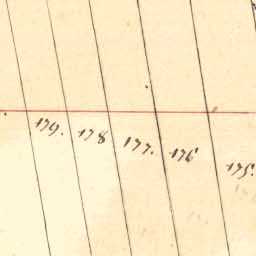 179. 178 177. 176 175.